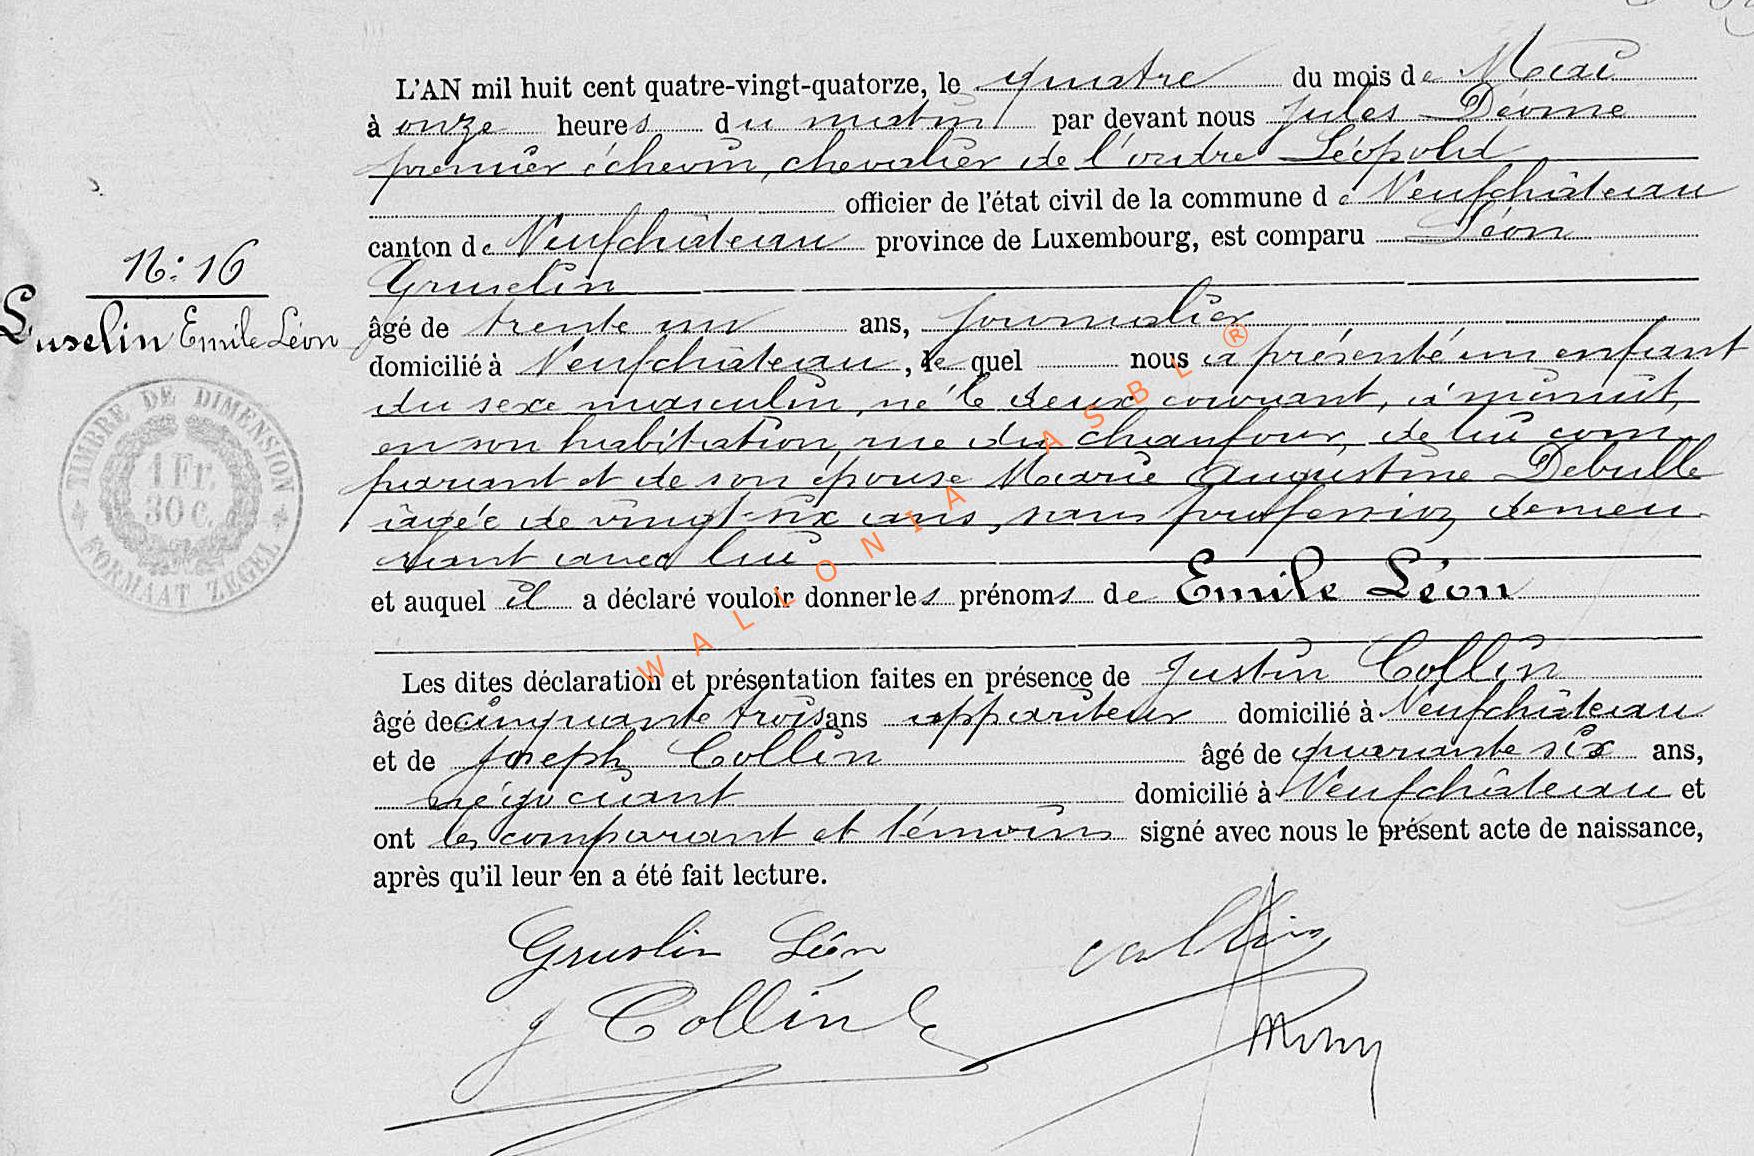 L'AN mil huit cent quatre-vingt-quatorze, le quatre du mois de Mai
à onze heures du matin par devant nous Jules Déome
premier échevin, chevalier de l'ordre Léopold
officier de l'état civil de la commune de Neufchâteau
canton de Neufchâteau province de Luxembourg, est comparu Léon
Gruselin
N: 16
âgé de trente un ans, journalier
uselin Emile Léon
domicilié à Neufchâteau, le quel nous a présenté un enfant
du sexe masculin, né le deux courant, à minuit,
en son habitation, rue du chaufour, de lui com
parant et de son épouse Marie Augustine Debulle
âgée de vingt-six ans, sans profession, demeu
rant avec lui
TIMBRE DE DIMENSION
1 Fr.
30 c.
FORMAAT ZEGEL
et auquel il a déclaré vouloir donner les prénoms de Emile Léon
Les dites déclaration et présentation faites en présence de Justin Collin
âgé de cinquante trois ans appariteur domicilié à Neufchâteau
et de Joseph Collin âgé de quarante six ans,
négociant domicilié à Neufchâteau et
ont les comparant et témoins signé avec nous le présent acte de naissance,
après qu'il leur en a été fait lecture.
Gruslin Léon Collin
J Collin
WALLONIA ASBL ®